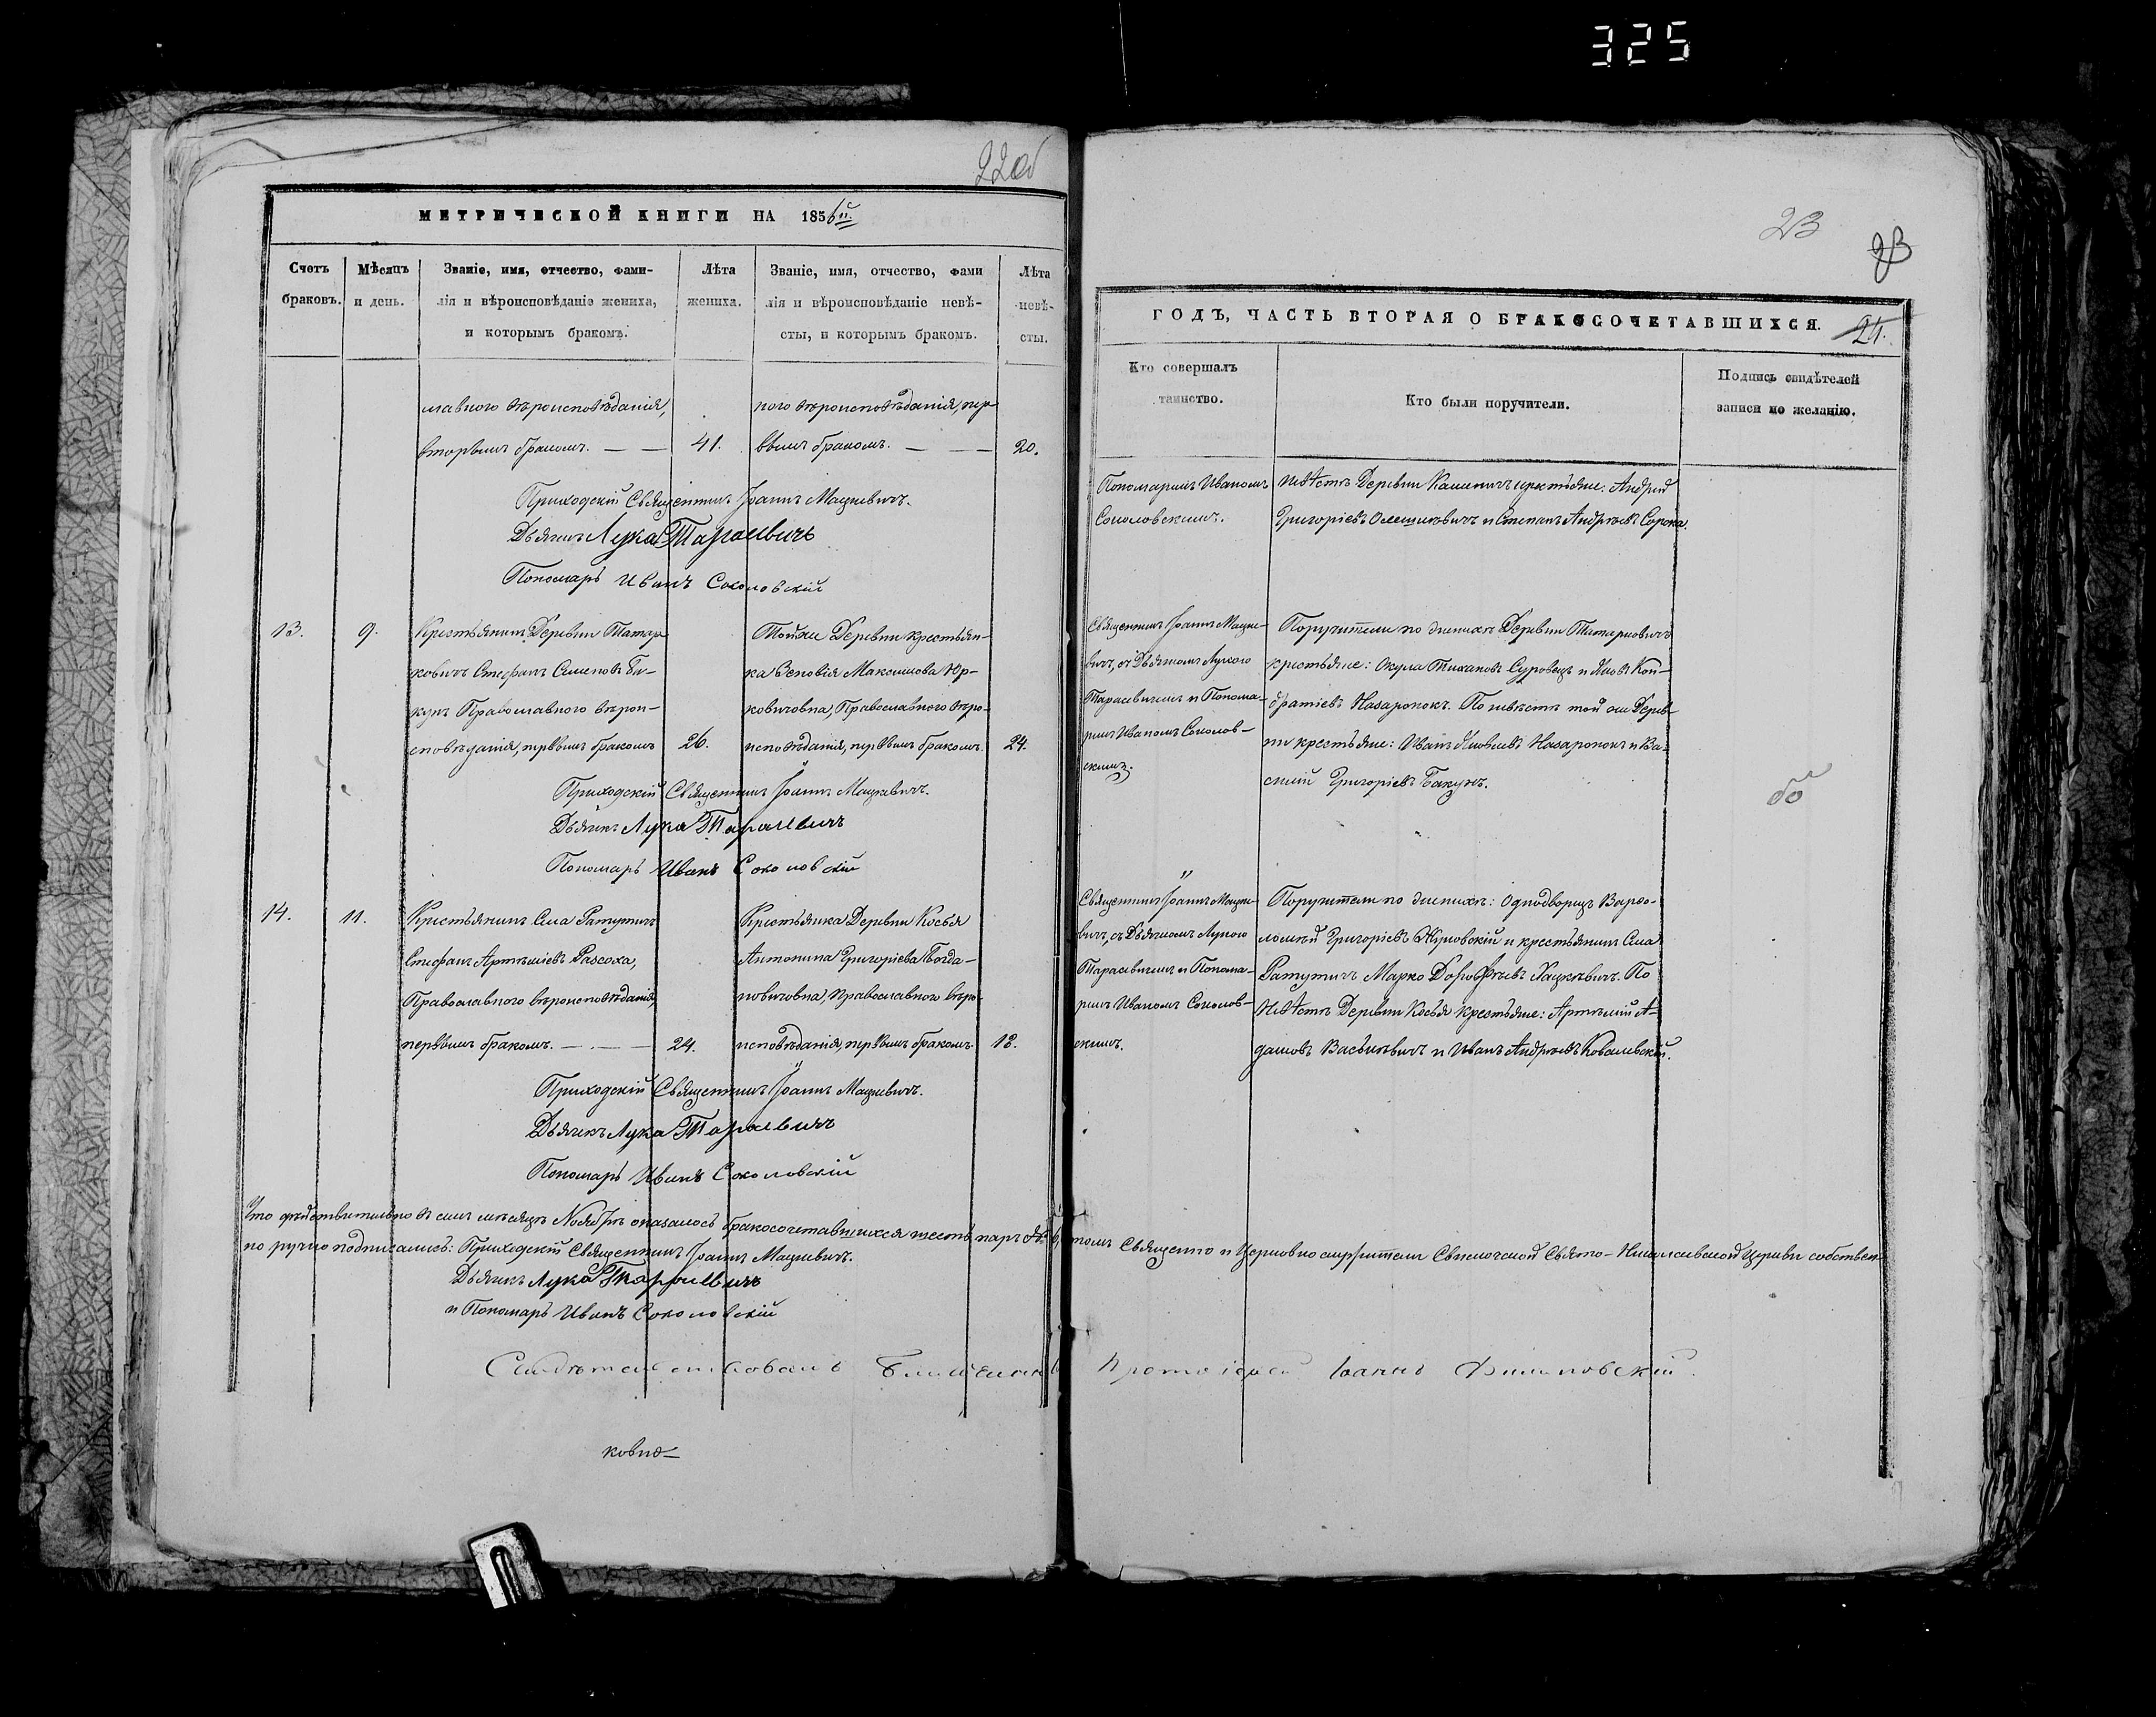 325
22об
МЕТРИЧЕСКОЙ КНИГИ НА 1856й
Счетъ браковъ.
Мѣсяцъ и день.
Званіе, имя, отчество, фами-
лія и вѣроисповѣданіе жениха,
и которымъ бракомъ.
Лѣта жениха.
Званіе, имя, отчество, фами
лія и вѣроисповѣданіе невѣ-
сты, и которымъ бракомъ.
Лѣта невѣ-
сты.
славного вѣроисповѣданія,
вторымъ бракомъ. — — 41.
ного вѣроисповѣданія, пер-
вымъ бракомъ. — — 20.
Приходскій Священникъ Іоаннъ Мацкевичъ.
Дьячкъ Лука Тарасевичъ
Пономаръ Иванъ Соколовскій
13. 9.
Крестьянинъ Деревни Татар-
ковичъ Стефанъ Семеновъ Ба-
кунъ Православного вѣрои-
сповѣданія, первымъ бракомъ 26.
Тойже Деревни крестьян-
ка Зеновія Максимова Юр-
ковичовна, Православного вѣро-
исповѣданія, первымъ бракомъ. 24.
Приходскій Священникъ Іоаннъ Мацкевичъ.
Дьячкъ Лука Тарасевичъ
Пономаръ Иванъ Соколовскій
14. 11.
Крестьянинъ Села Ратутичъ
Стефанъ Артеміевъ Рассоха,
Православного вѣроисповѣданія,
первымъ бракомъ. — — 24.
Крестьянка Деревни Косья
Антонина Григоріева Богда-
новичовна, Православного вѣро-
исповѣданія, первымъ бракомъ 18.
Приходскій Священникъ Іоаннъ Мацкевичъ.
Дьячекъ Лука Тарасевичъ
Пономаръ Иванъ Соколовскій
Что дѣйствительно въ семъ мѣсяцѣ Ноябрѣ оказалось бракосочетавшихся шесть паръ
но ручно подписались: Приходскій Священникъ Іоаннъ Мацкевичъ.
Дьячекъ Лука Тарасевичъ
и Пономаръ Иванъ Соколовскій
Свидѣтельствовалъ
23
23
ГОДЪ, ЧАСТЬ ВТОРАЯ О БРАКОСОЧЕТАВШИХСЯ.
24.
Кто совершалъ
таинство.
Кто были поручители.
Подпись свидѣтелей
записи по желанію.
Пономаримъ Иваномъ
Соколовскимъ.
невѣстѣ Деревни Каменичъ крестьяне: Андрей
Григоріевъ Олешкевичъ и Степанъ Андреевъ Сорока.
Священникъ Іоаннъ Мацке-
вичъ, съ Дьячкомъ Лукою
Тарасевичемъ и Понома-
римъ Иваномъ Соколов-
скимъ.
Поручители по женихѣ Деревни Татарковичъ
крестьяне: Окула Тихановъ Суровецъ и Яковъ Кон-
дратіевъ Назаронокъ. По невѣстѣ той же Дерев-
ни крестьяне: Иванъ Яковлевъ Назаронокъ и Ва-
силій Григоріевъ Бакунъ.
Священникъ Іоаннъ Мацке-
вичъ, съ Дьячкомъ Лукою
Тарасевичемъ и Понома-
римъ Иваномъ Соколов-
скимъ.
Поручители по женихѣ: Однодворецъ Варфо-
ломей Григоріевъ Жуковскій и крестьянинъ Села
Ратутичъ Марко Дорофѣевъ Хацкевичъ. По
невѣстѣ Деревни Косья крестьяне: Артемій А-
дамовъ Васькевичъ и Иванъ Андреевъ Ковалевскій.
томъ Священно и Церковно служители Свислочской Свято-Николаевской Церкви собствен-
Протоіерей Іоаннъ